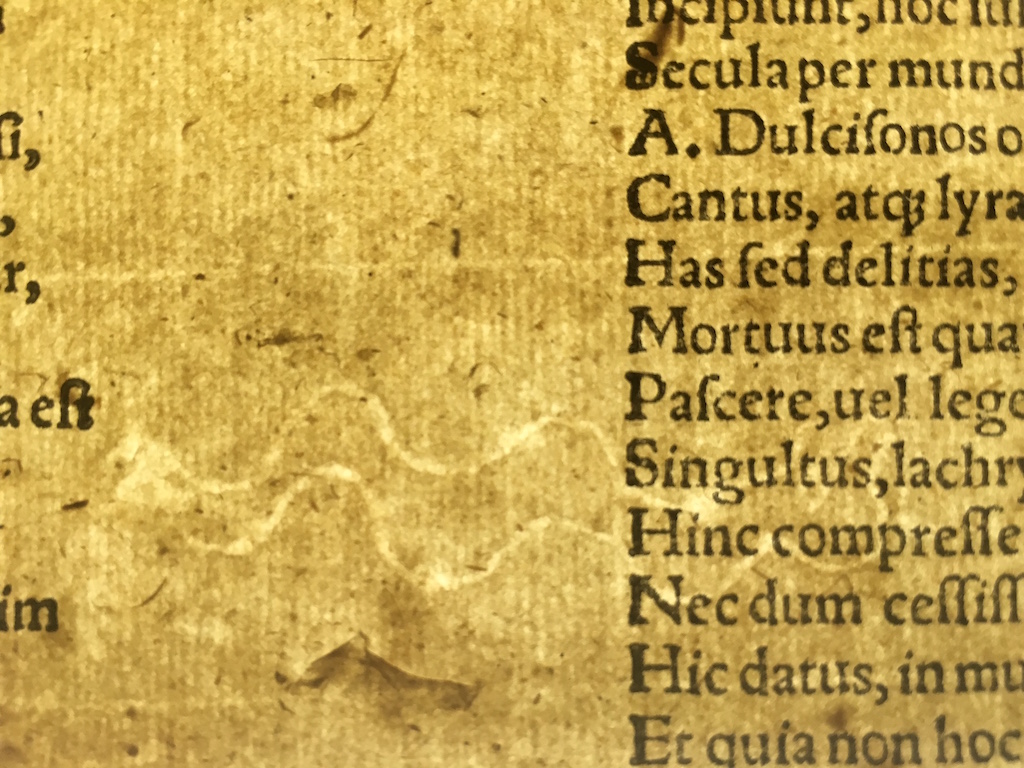 ſi,
,
r,
a eſt
im
Incipiunt, hoc
Secula per mund
A. Dulciſonos o
Cantus, atqꝫ lyra
Has ſed delitias,
Mortuus eſt qua
Paſcere, uel lege
Singultus, lachry
Hinc compreſſe
Nec dum ceſſiſſ
Hic datus, in mu
Et quia non hoc